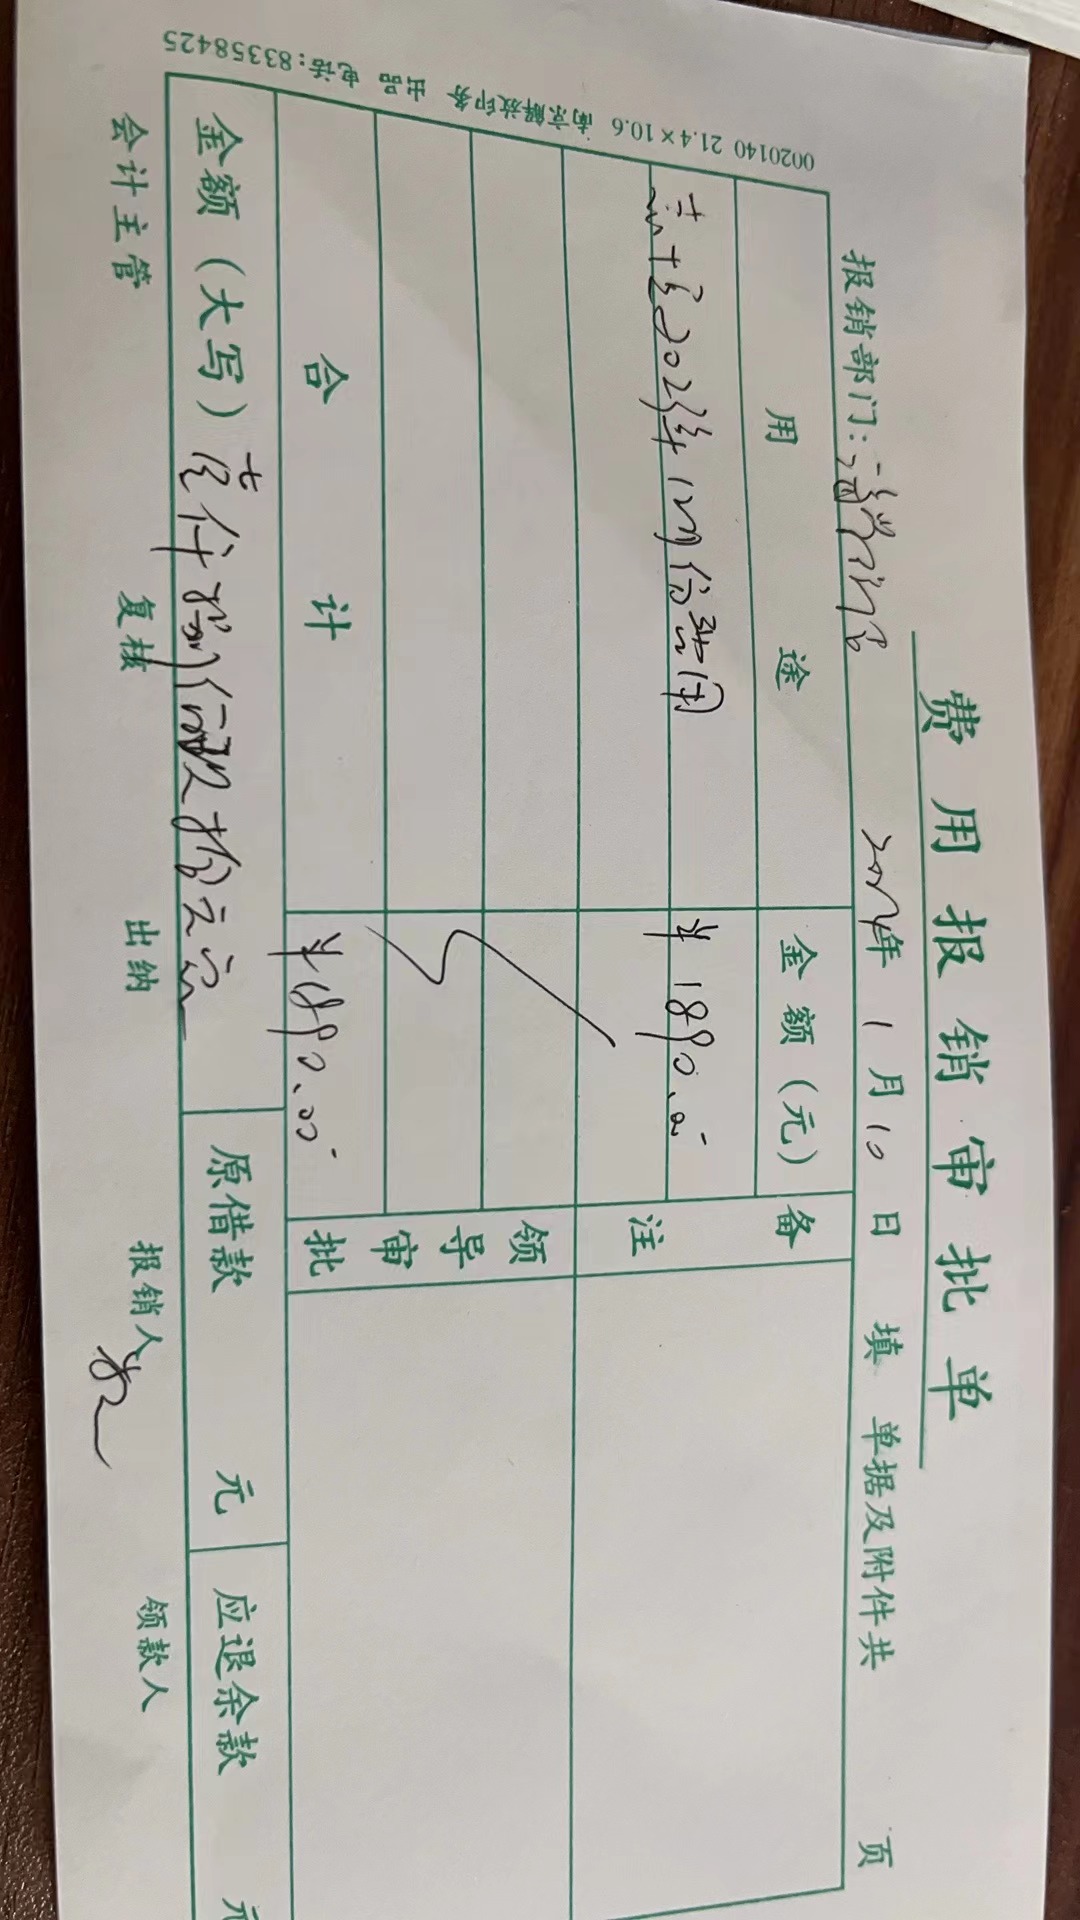 费用报销审批单
报销部门: 2024年1月10日 填 单据及附件共 页
用途 金额(元) 备注
2023年12月份费用 ¥1890.00
领导审批
合计 ¥1890.00
金额(大写)壹仟捌佰玖拾元 原借款 元 应退余款 元
会计主管 复核 出纳 报销人 领款人
0020140 21.4×10.6 南京解放印务 出品 电话:83358425